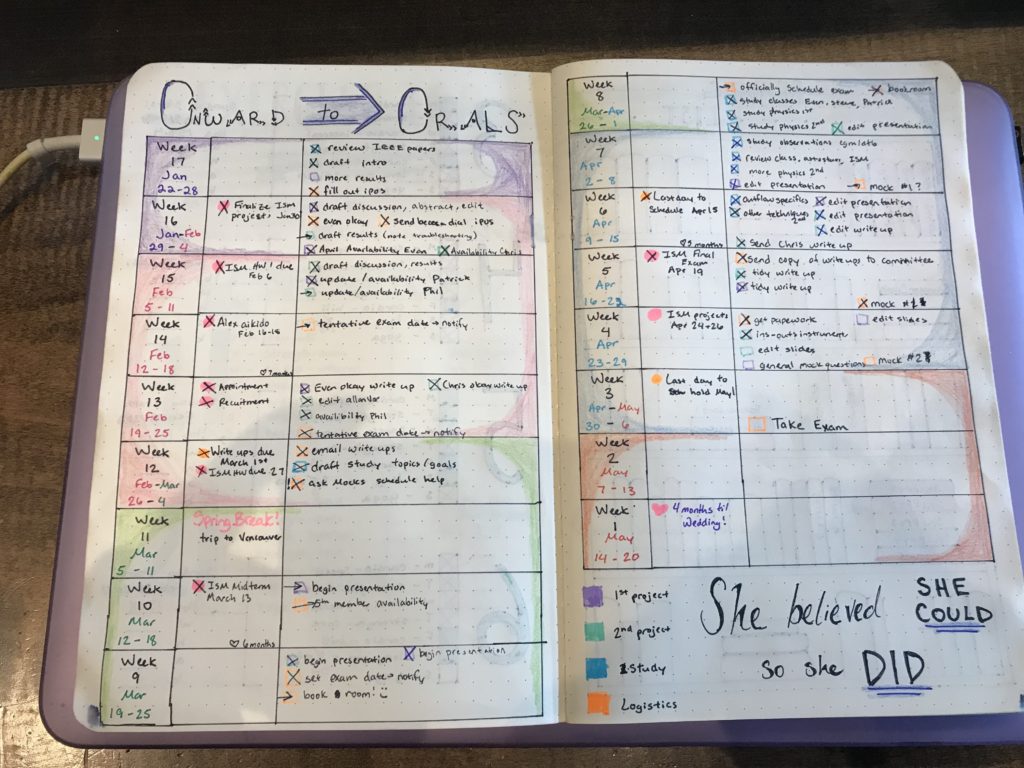 ONWARD to ORALS
Week
17
Jan
22-28
review IEEE papers
draft intro
more results
fill out ipos
Week
16
Jan-Feb
29-4
Finalize Ism
project, Jan30
draft discussion, abstract, edit
even okay
send ipos
draft results (note troubleshooting)
April Availability Evan
Availability Chris
Week
15
Feb
5-11
ISM HW 1 due
Feb 6
draft discussion, results
update/availability Patrick
update/availability Phil
Week
14
Feb
12-18
Alex aikido
Feb 16-18
♡ 7 months
tentative exam date → notify
Week
13
Feb
19-25
Appointment
Recruitment
Even okay write up
Chris okay write up
edit
availibility Phil
tentative exam date → notify
Week
12
Feb-Mar
26-4
Write ups due
March 1st
ISM HW due 27
email write ups
draft study topics/goals
! ask Mocks schedule help
Week
11
Mar
5-11
Spring Break!
trip to Vancouver
Week
10
Mar
12-18
ISM Midterm
March 13
♡ 6 months
begin presentation
5th member availability
Week
9
Mar
19-25
begin presentation
begin presentation
set exam date → notify
book room!
Week
8
Mar-Apr
26-1
officially schedule exam
book room
study classes Evan, Steve, Patrick
study physics 1st
study physics 2nd
edit presentation
Week
7
Apr
2-8
study observations
review class, astrochem, ISM
more physics 2nd
edit presentation
mock #1?
Week
6
Apr
9-15
Last day to
Schedule Apr 15
♡ 5 months
outflow specifics
edit presentation
other techniques 2nd
edit presentation
edit write up
send Chris write up
Week
5
Apr
16-22
ISM Final
Exam
Apr 19
Send copy of write ups to committee
tidy write up
tidy write up
mock #1
Week
4
Apr
23-29
ISM projects
Apr 24+26
get papework
edit slides
ins-outs instrument
edit slides
general mock questions
mock #2
Week
3
Apr-May
30-6
Last day to
hold May 1
Take Exam
Week
2
May
7-13
Week
1
May
14-20
4 months til
Wedding!
1st project
2nd project
Study
Logistics
She believed SHE
COULD
so she DID